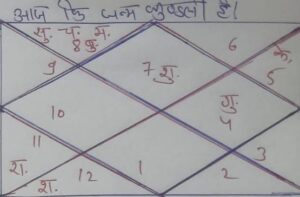 आज कि जन्म कुण्डली है।
सु. च. म.
8 बु.
6
9
7 शु.
के.
5
10
गु.
4
11
रा.
श. 12
1
2
3